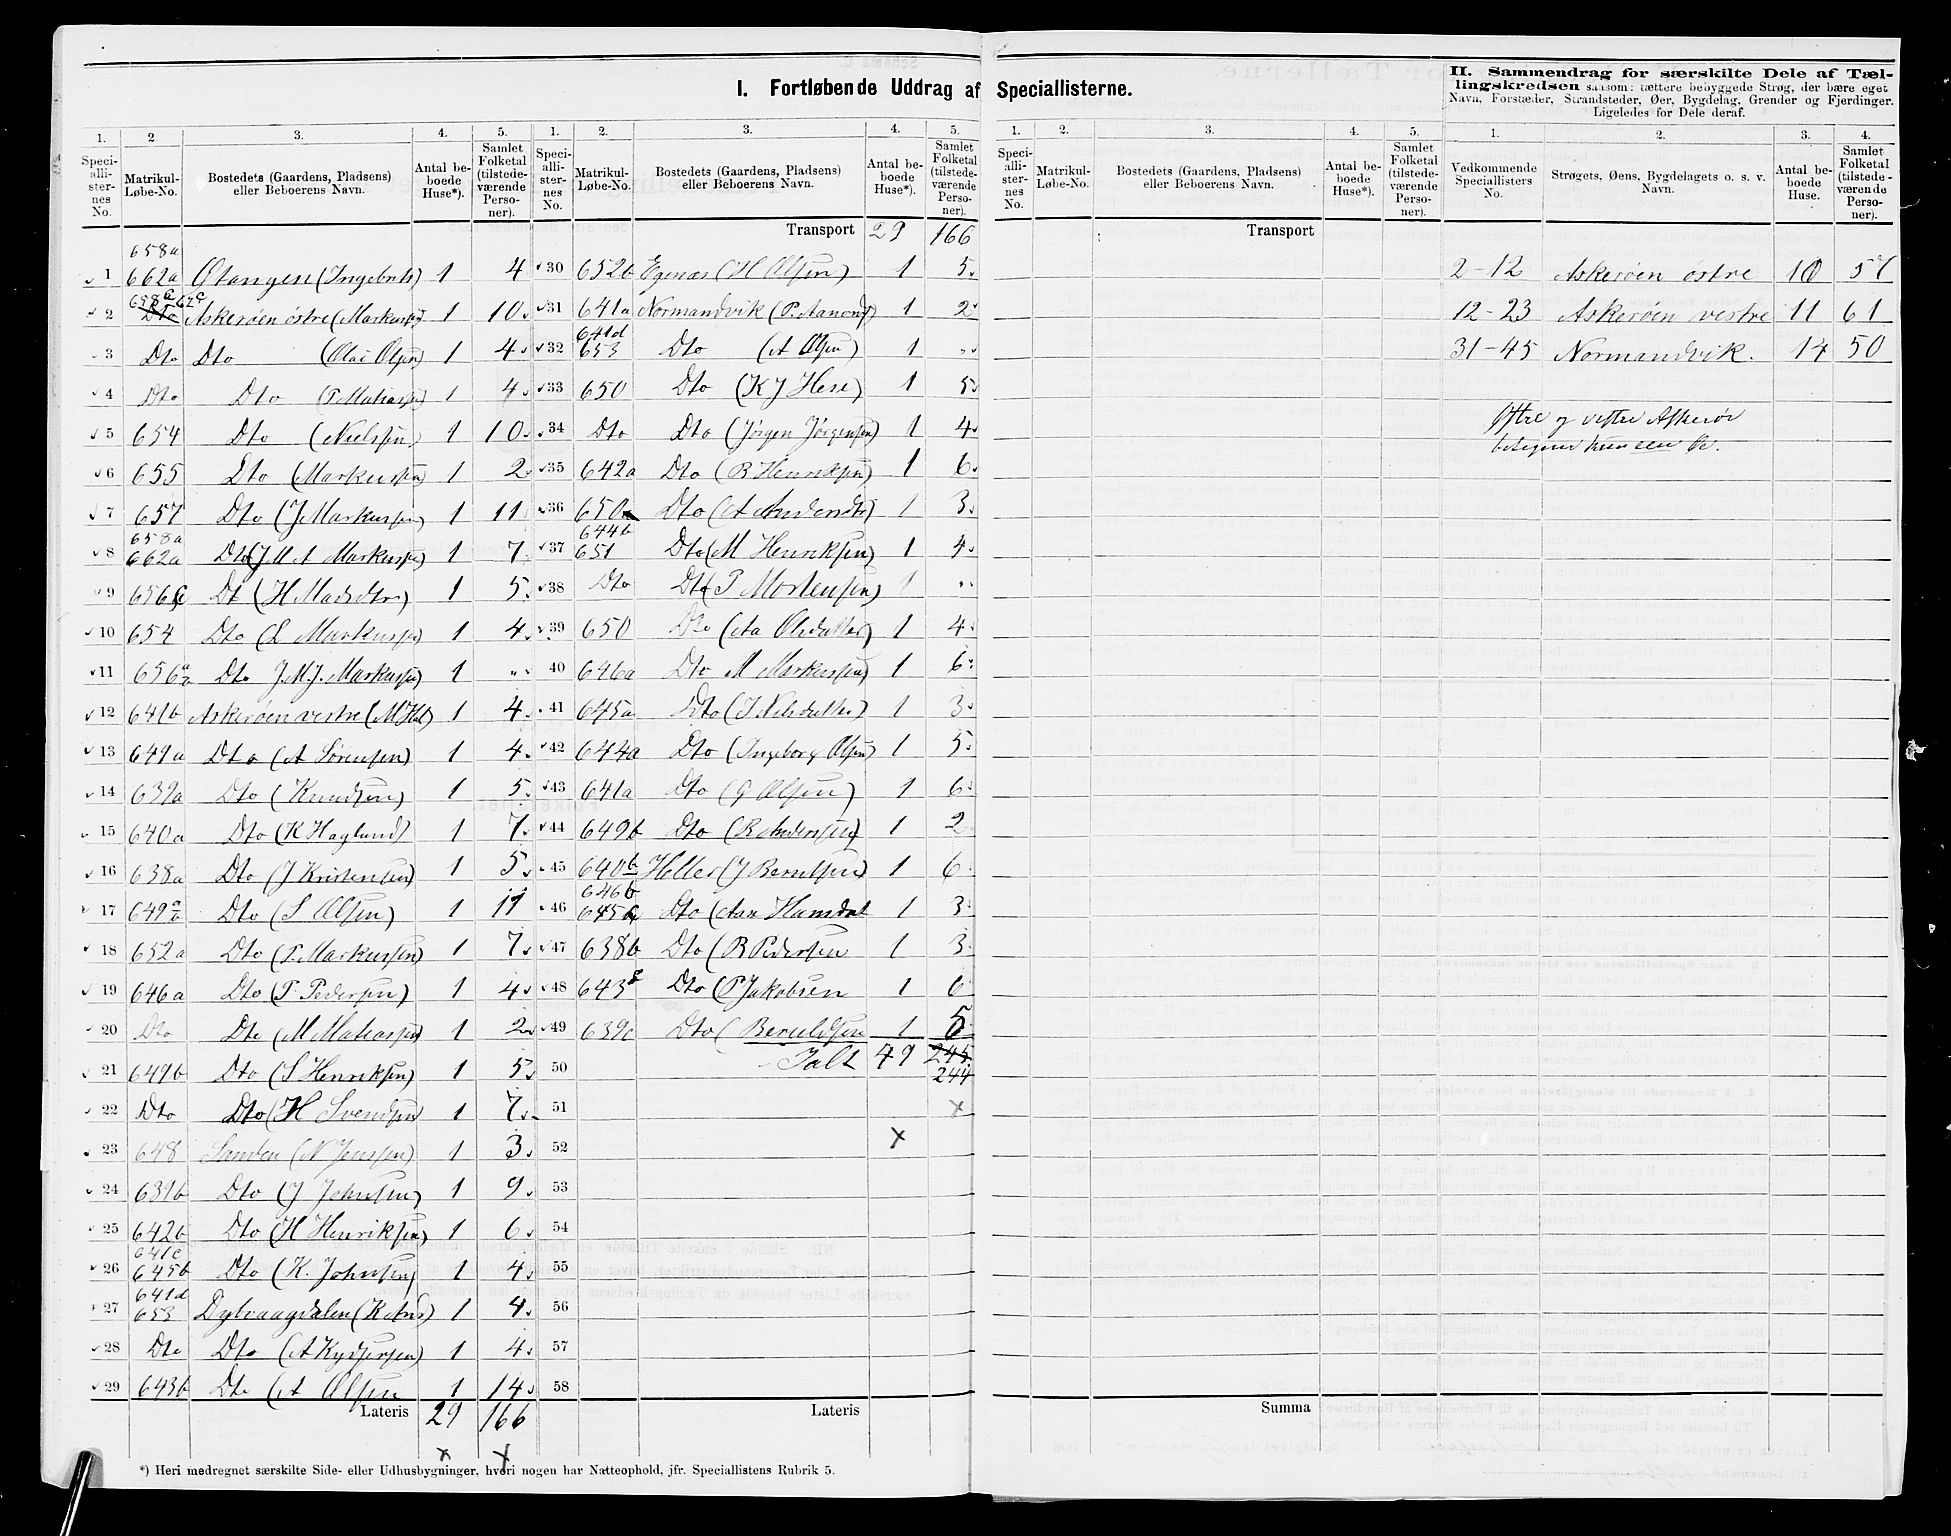 I. Fortløbende Uddrag af Speciallisterne.
II. Sammendrag for særskilte Dele af Tællingskredsen saasom: tættere bebyggede Strøg, der bære eget
Navn, Forstæder, Strandsteder, Øer, Bygdelag, Grender og Fjerdinger.
Ligeledes for Dele deraf.
1. 2. 3. 4. 5. 1. 2. 3. 4. 5. 1. 2. 3. 4. 5. 1. 2. 3. 4.
Speciallisternes No. Matrikul-Løbe-No. Bostedets (Gaardens, Pladsens) eller Beboerens Navn. Antal beboede Huse*). Samlet Folketal (tilstedeværende Personer).
Speciallisternes No. Matrikul-Løbe-No. Bostedets (Gaardens, Pladsens) eller Beboerens Navn. Antal beboede Huse*). Samlet Folketal (tilstedeværende Personer).
Speciallisternes No. Matrikul-Løbe-No. Bostedets (Gaardens, Pladsens) eller Beboerens Navn. Antal beboede Huse*). Samlet Folketal (tilstedeværende Personer).
Vedkommende Speciallisters No. Strøgets, Øens, Bygdelagets o. s. v. Navn. Antal beboede Huse. Samlet Folketal (tilstedeværende Personer).
1 658a 662a 1 4
2 Askerøen østre (Markussen) 1 10
3 Dto Dto (Olai Olsen) 1 4
4 Dto Dto 1 4
5 654 Dto (Nielssen) 1 10
6 655 Dto (Markussen) 1 2
7 657 Dto (J Markussen) 1 11
8 658a 662a Dto (J M A Markussen) 1 7
9 Dt (H Madsdtr) 1 5
10 654 Dto (L Markussen) 1 4
11 Dto J. M. J. Markussen) 1 "
12 641b Askerøen vestre (M Hal) 1 4
13 649a Dto (A Sørensen) 1 4
14 639a Dto (Knudsen) 1 5
15 640a Dto (K Haglund) 1 7
16 638a Dto (J Kristensen) 1 5
17 Dto (S Olsen) 1 11
18 652a Dto (P. Markussen) 1 7
19 646a Dto (P. Pedersen) 1 4
20 Dto Dto (M Matiassen) 1 2
21 649b Dto (S Henriksen) 1 5
22 Dto Dto (H Svendsen) 1 7
23 648 Sanden (N Jenssen) 1 3
24 639b Dto (J Johnsen) 1 9
25 642b Dto (H Henriksen) 1 6
26 641c 645b Dto (K. Johnsen) 1 4
27 641d 653 Dybvaagdalen (K And) 1 4
28 Dto Dto 1 4
29 643b Dto (A Olsen 1 14
Lateris 29 166
Transport 29 166
30 652b Egenæs (H Olsen) 1 5
31 641a Normandvik 1 2
32 641d 653 Dto (A Olsen) 1 "
33 650 Dto 1 5
34 Dto Dto (Jørgen Jørgensen) 1 4
35 642a Dto (B Henriksen) 1 6
36 650 Dto 1 3
37 644b 651 Dto (M Henriksen) 1 4
38 Dto Dto (P Mortensen) 1 "
39 650 Dto (Aa Olsdatter) 1 4
40 646a Dto M Markussen) 1 6
41 645a Dto (J Nilsdatter) 1 3
42 644a Dto (Ingeborg Olsen) 1 5
43 641a Dto (G Olsen) 1 6
44 649b Dto (R Andersen) 1 2
45 640b Helles (J Berntsen) 1 6
46 646b Dto 1 3
47 638b Dto (R Pedersen 1 3
48 Dto (P Jakobsen 1 6
49 639c Dto 1 5
50 Ialt 49 245 244
51
52
53
54
55
56
57
58
Lateris
Transport
Summa
2-12 Askerøen østre 10 57
12-23 Askerøen vestre 11 61
31-45 Normandvik. 14 50
Østre og vestre Askerø
betegner kun een Ø.
*) Heri medregnet særskilte Side- eller Udhusbygninger, hvori nogen har Natteophold, jfr. Speciallistens Rubrik 5.